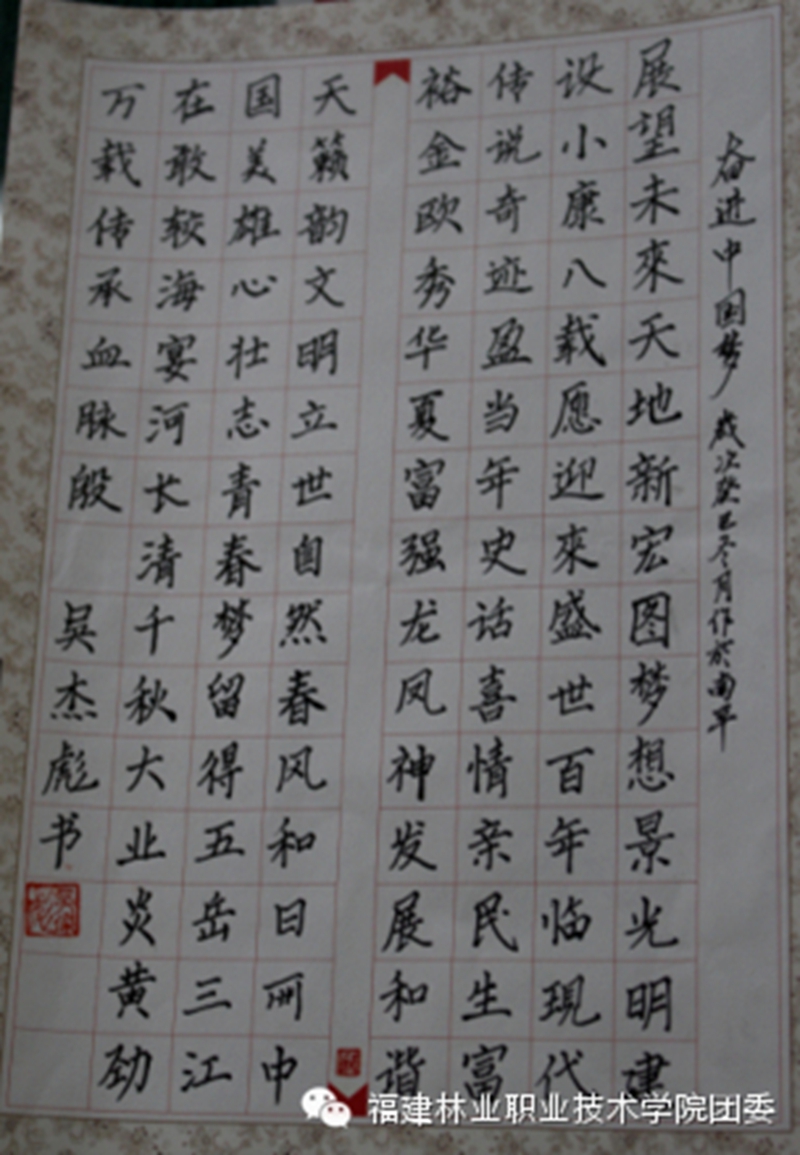 奋进中国梦 岁次癸巳冬月作於南平
展望未來天地新宏图梦想景光明建
设小康八载愿迎來盛世百年临現代
传说奇迹盈当年史话喜情亲民生富
裕金欧秀华夏富强龙凤神发展和谐
天籁韵文明立世自然春风和日丽中
国美雄心壮志青春梦留得五岳三江
在敢较海宴河长清千秋大业炎黄劲
万载传承血脉殷 吴杰彪书
福建林业职业技术学院团委